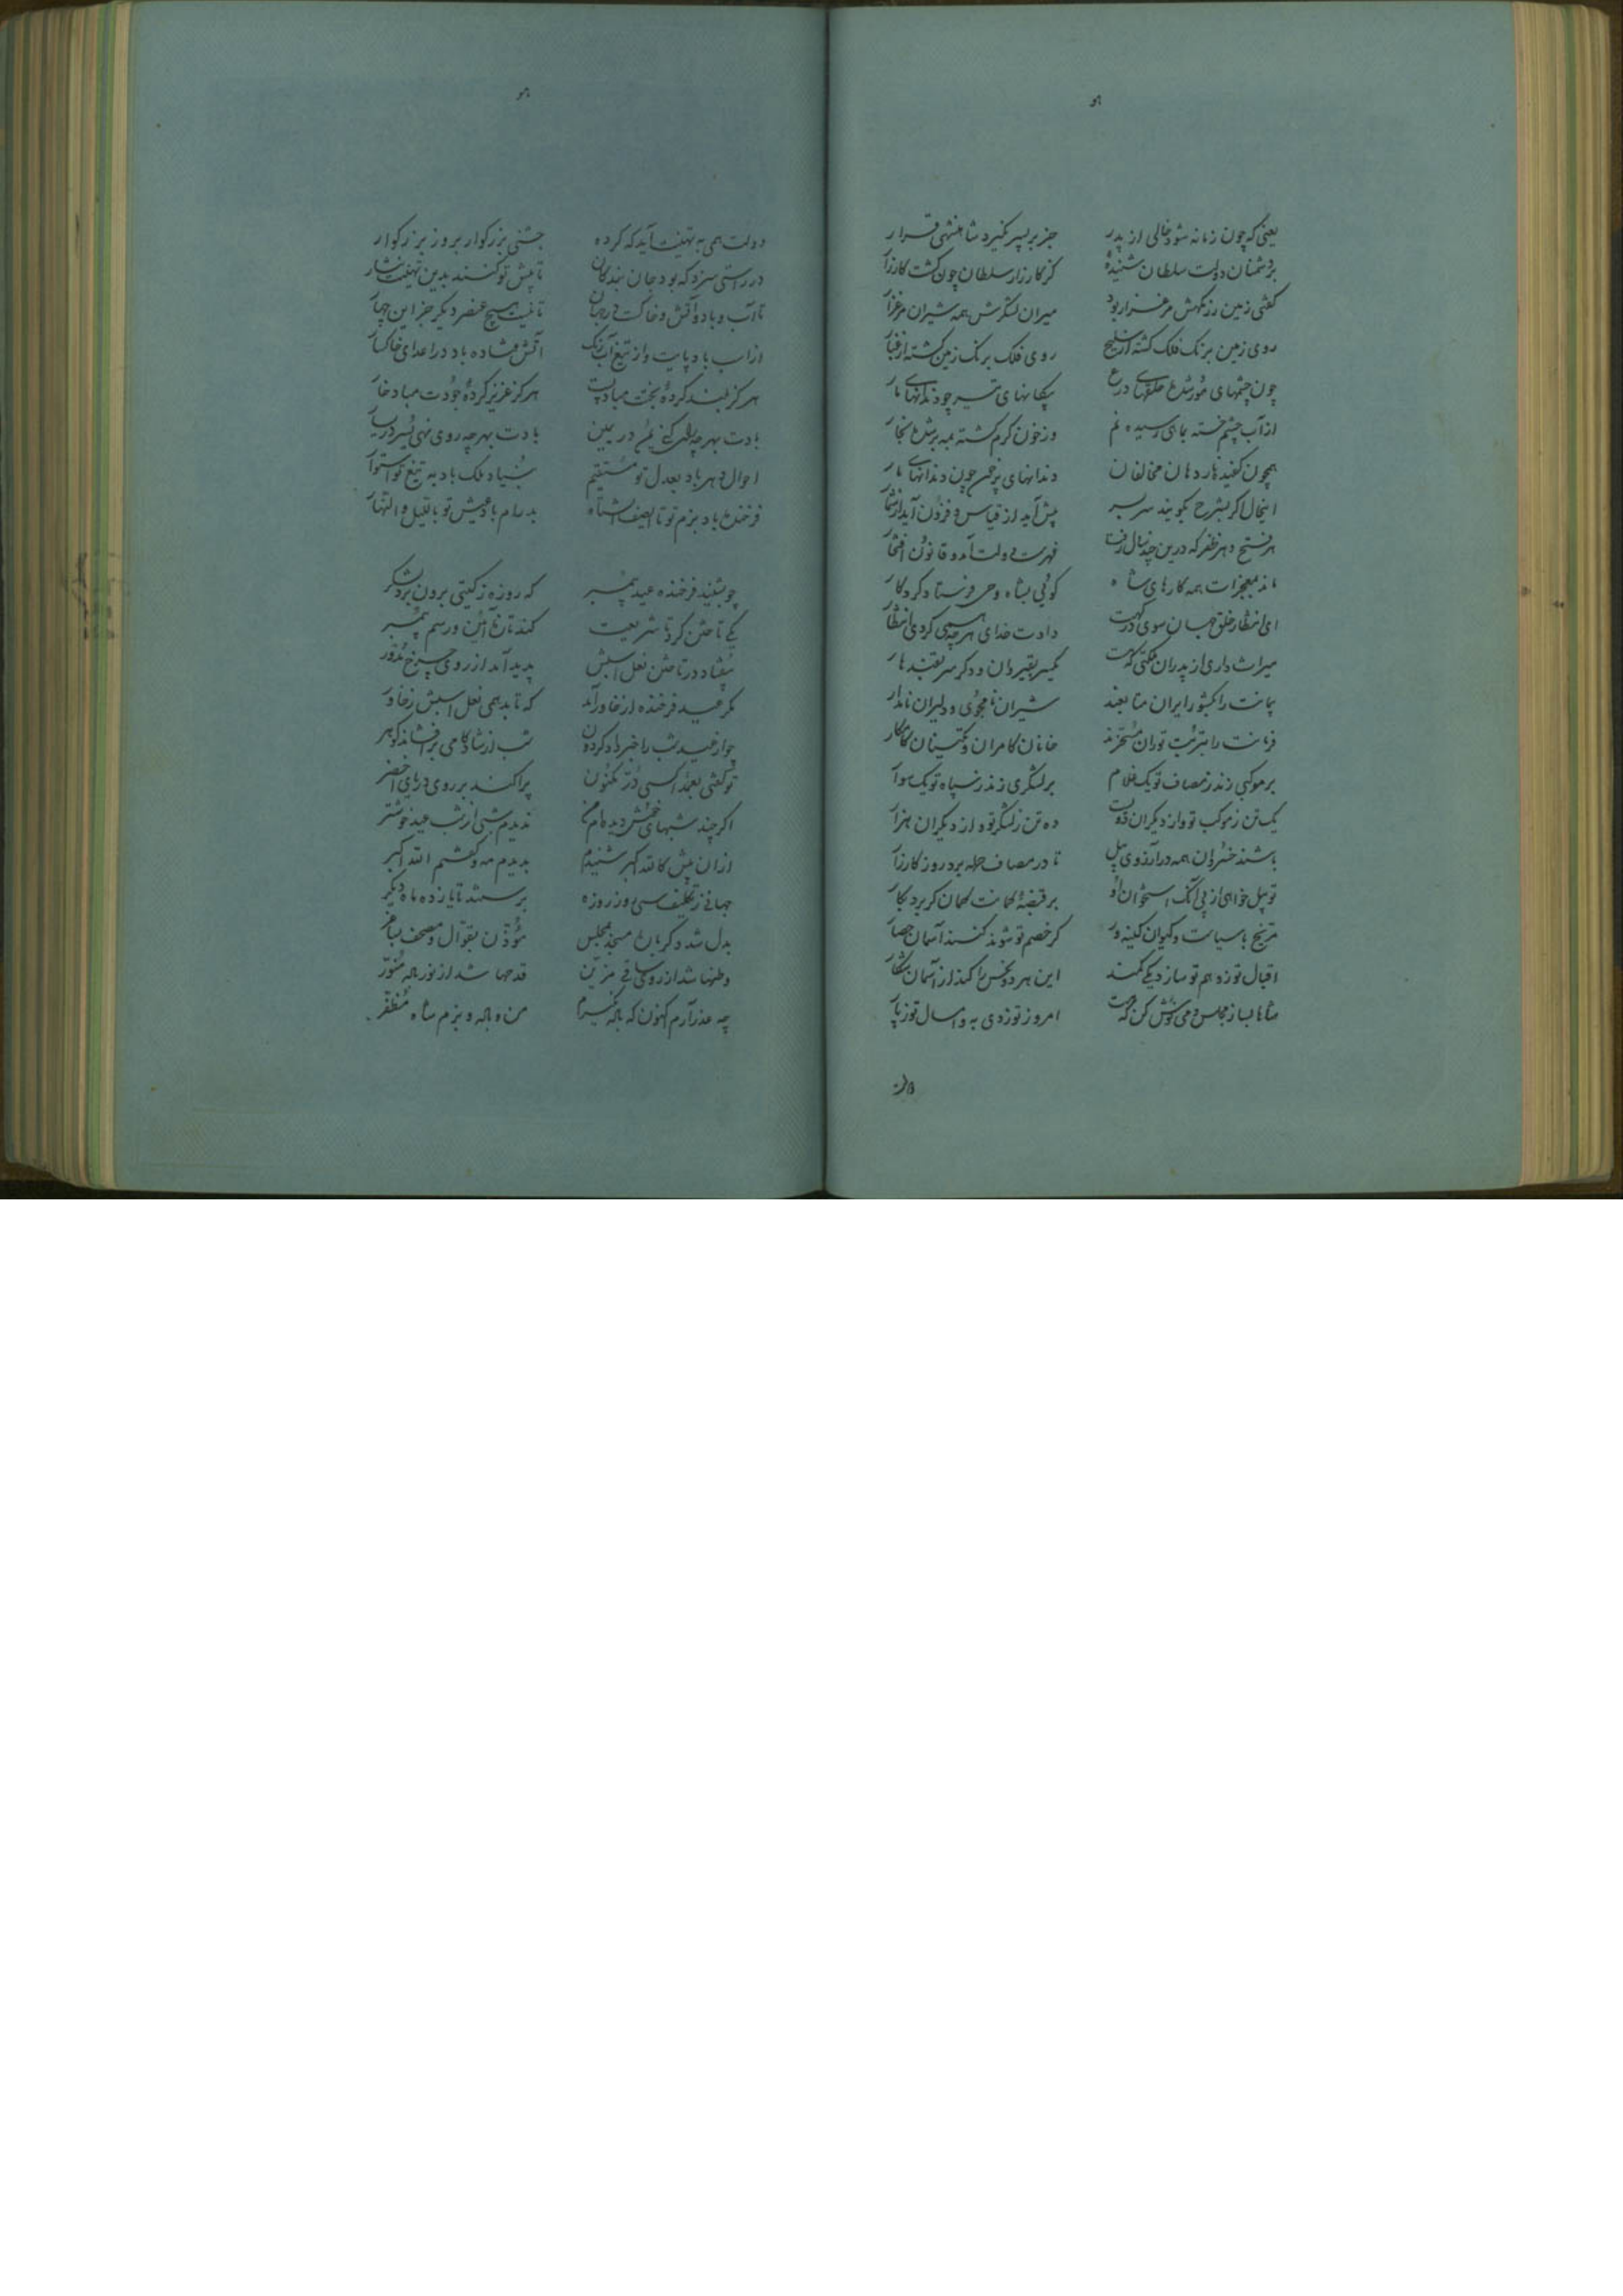 هو
یعنی که چون زمانه شود خالی از پدر جز بر پسر نگیرد شاهنشهی قرار
بر دشمنان دولت سلطان شنیدهٔ کز کارزار سلطان چون گشت کارزار
گفتی زمین رزمگهش مرغزار بود میران لشکرش همه شیران مرغزار
روی زمین برنک فلک کشته از سلیح روی فلک برنک زمین کشته از غبار
چون چشمهای مور شده حلقهای درع پیکانهای تیر چو دندانهای مار
از آب چشم خسته بماهی رسیده نم وز خون کرم کشته بمه بر شده بخار
همچون کفیده نار دهان مخالفان دندانهای پرخون چون دندانهای نار
اینحال اکر بشرح بکویند سربسر پیش آید از قیاس و فزون آید از شمار
هر فتح و هر ظفر که درین چند سال رفت فهرست دولت آمد و قانون افتخار
ماند بمعجزات همه کارهای شاه کوئی بشاه وحی فرستاد کردکار
ای انتظار خلق جهان سوی درکهت دادت خدای هرچه همی کردی انتظار
میراث داری از پدران مملکتی که هست یکسر بقیروان و دکر سر بقندهار
پیمانت را بکشور ایران متابعند شیران نامجوی و دلیران نامدار
فرمانت را بتربت توران مسخرند خانان کامران و تکینان کامکار
بر موکبی زند ز مصاف تو یک غلام بر لشکری زند ز سپاه تو یک سوار
یک تن ز موکب تو و از دیکران دویست ده تن ز لشکر تو و از دیکران هزار
باشند خسروان همه در آرزوی پیل تا در مصاف حمله برد روز کارزار
تو پیل خواهی از پی آنک استخوان او بر قبضهٔ کمانت کمان کر برد بکار
مریخ با سیاست و کیوان کینه‌ور کر خصم تو شوند کنند آسمان حصار
اقبال تو زه هم تو سازد یکی کمند این هر دو نحس را کند از آسمان شکار
شاها بساز مجلس و می نوش کن که هست امروز تو ز دی به و امسال تو ز پار
هو
دولت همی به تهنیت آید که کرده جشنی بزرکوار بروز بزرکوار
در راستی سزد که بود جان بندکان تا پیش تو کنند بدین تهنیت نثار
تا آب و باد و آتش و خاکست در جهان تا نیست هیچ عنصر دیکر جز این چهار
از اسب باد پایت و از تیغ آب رنک آتش فشاده باد در اعدای خاکسار
هرکز بلند کردهٔ بختت مباد پست هرکز عزیز کردهٔ جودت مباد خوار
بادت بهرچه رای کنی یمن در یمین بادت بهرچه روی نهی یسر در یسار
احوال دهر باد بعدل تو مستقیم بنیاد ملک باد به تیغ تو استوار
فرخنده باد بزم تو تا الصیف الشتاء پدرام باد عیش تو باللیل والنهار
چو بشنید فرخنده عید پیمبر که روزه ز کیتی برون برد لشکر
یکی تاختن کرد تا شریعت کند تازه آئین و رسم پیمبر
بیفتاد در تاختن نعل اسبش پدید آمد از روی چرخ مدور
مکر عید فرخنده از خاور آمد که تابد همی نعل اسبش ز خاور
چو از عید شب را خبر داد کردون شب از شادکامی برافشاند کوهر
تو کفتی بعمدا کسی در مکنون پراکند بر روی دریای اخضر
اکرچند شبهای خوش دیده‌ام من ندیدم شبی از شب عید خوشتر
از آن پیش کالله اکبر شنیدم بدیدم مه و کفتم الله اکبر
جهانی ز تکلیف سی روز روزه برستند تا یازده ماه دیکر
بدل شد دکرباره مسجد بمجلس مؤذن بقوال و مصحف بساغر
وطنها شد از روی ساقی مزین قدحها شد از نور باده منور
چه عذر آرم اکنون که باده نکیرم من و باده و بزم شاه مظفر